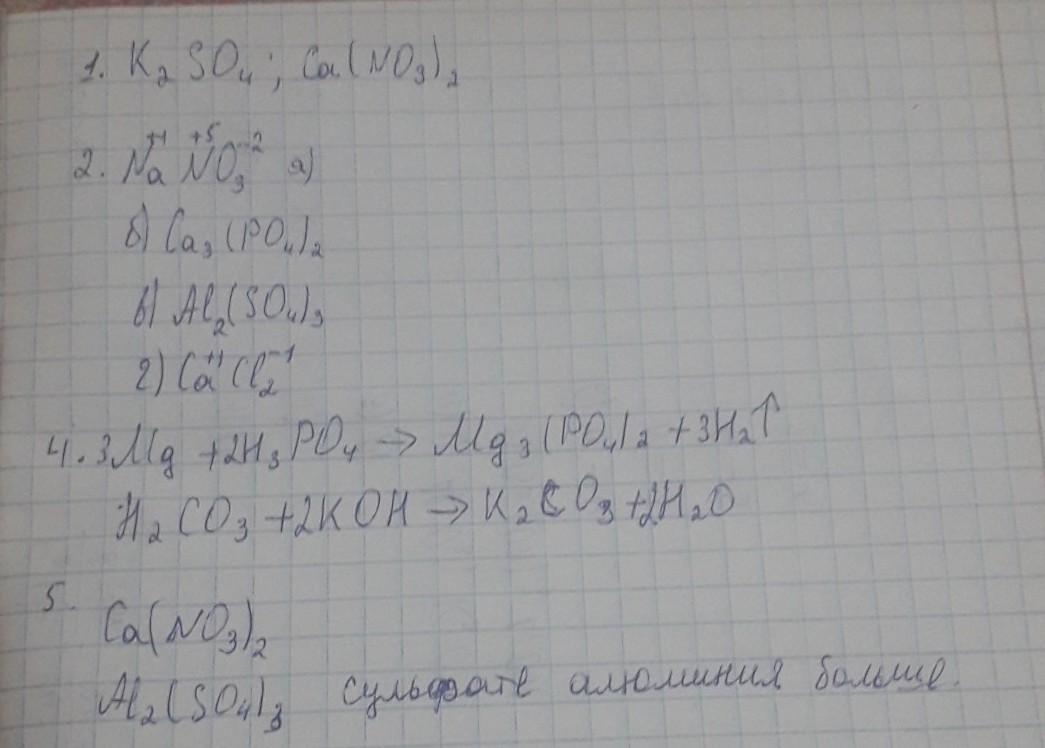 1. K₂SO₄; Ca(NO₃)₂
2. Na⁺¹N⁺⁵O₃⁻² а)
б) Ca₃(PO₄)₂
в) Al₂(SO₄)₃
г) Ca⁺¹Cl₂⁻¹
4. 3Mg + 2H₃PO₄ → Mg₃(PO₄)₂ + 3H₂↑
H₂CO₃ + 2KOH → K₂CO₃ + 2H₂O
5.
Ca(NO₃)₂
Al₂(SO₄)₃ сульфате алюминия больше.